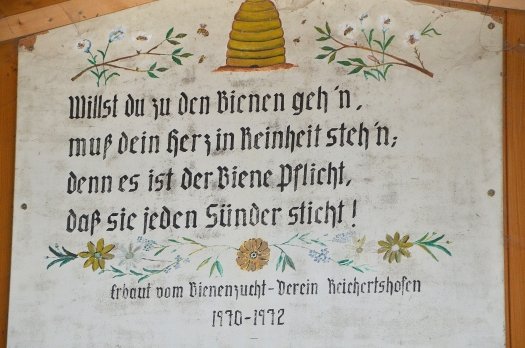 Willst du zu den Bienen geh'n,
muß dein Herz in Reinheit steh'n;
denn es ist der Biene Pflicht,
daß sie jeden Sünder sticht!
Erbaut vom Bienenzucht-Verein Reichertshofen
1970-1972